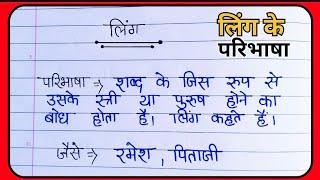 लिंग
लिंग के
परिभाषा
परिभाषा ⇒ शब्द के जिस रुप से
उसके स्त्री या पुरुष होने का
बोध होता है। लिंग कहते है।
जैसे ⇒ रमेश, पिताजी